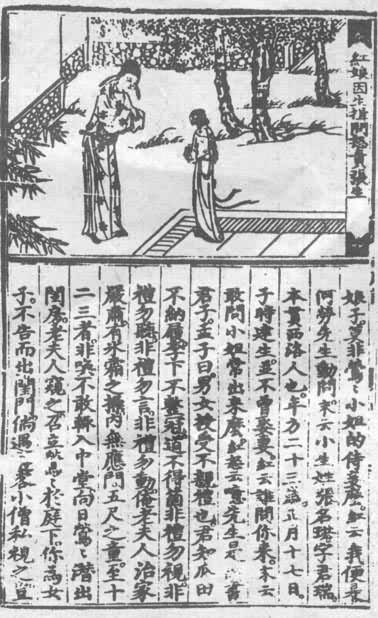 紅娘因生揖問怒責張生
娘子莫非鶯〻小姐的侍妾麽紅云我便是
何勞先生動問末云小生姓張名珙字君瑞
本貫西洛人也年方二十三歲正月十七日
子時建生並不曾娶妻紅云誰問你来末云
敢問小姐常出来麽紅怒云先生是書
君子孟子曰男女授受不親禮也君知瓜田
不納履李下不整冠道不得箇非禮勿視非
禮勿聽非禮勿言非禮勿動俺老夫人治家
嚴肅有氷霜之操内無應門五尺之童至十
二三者非喚不敢輒入中堂向日鶯〻潜出
閨房老夫人窺之召立鶯〻於庭下你爲女
子不告而出閨門倘遇客小僧私視之豈